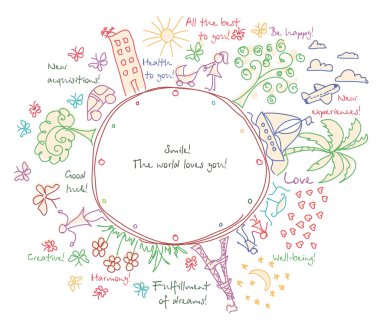 All the best
to you!
Be happy!
Health
to you!
New
acquisitions!
New
experiences!
Smile!
The world loves you!
Good
luck!
Love
Creative!
Well-being!
Harmony!
Fulfillment
of dreams!